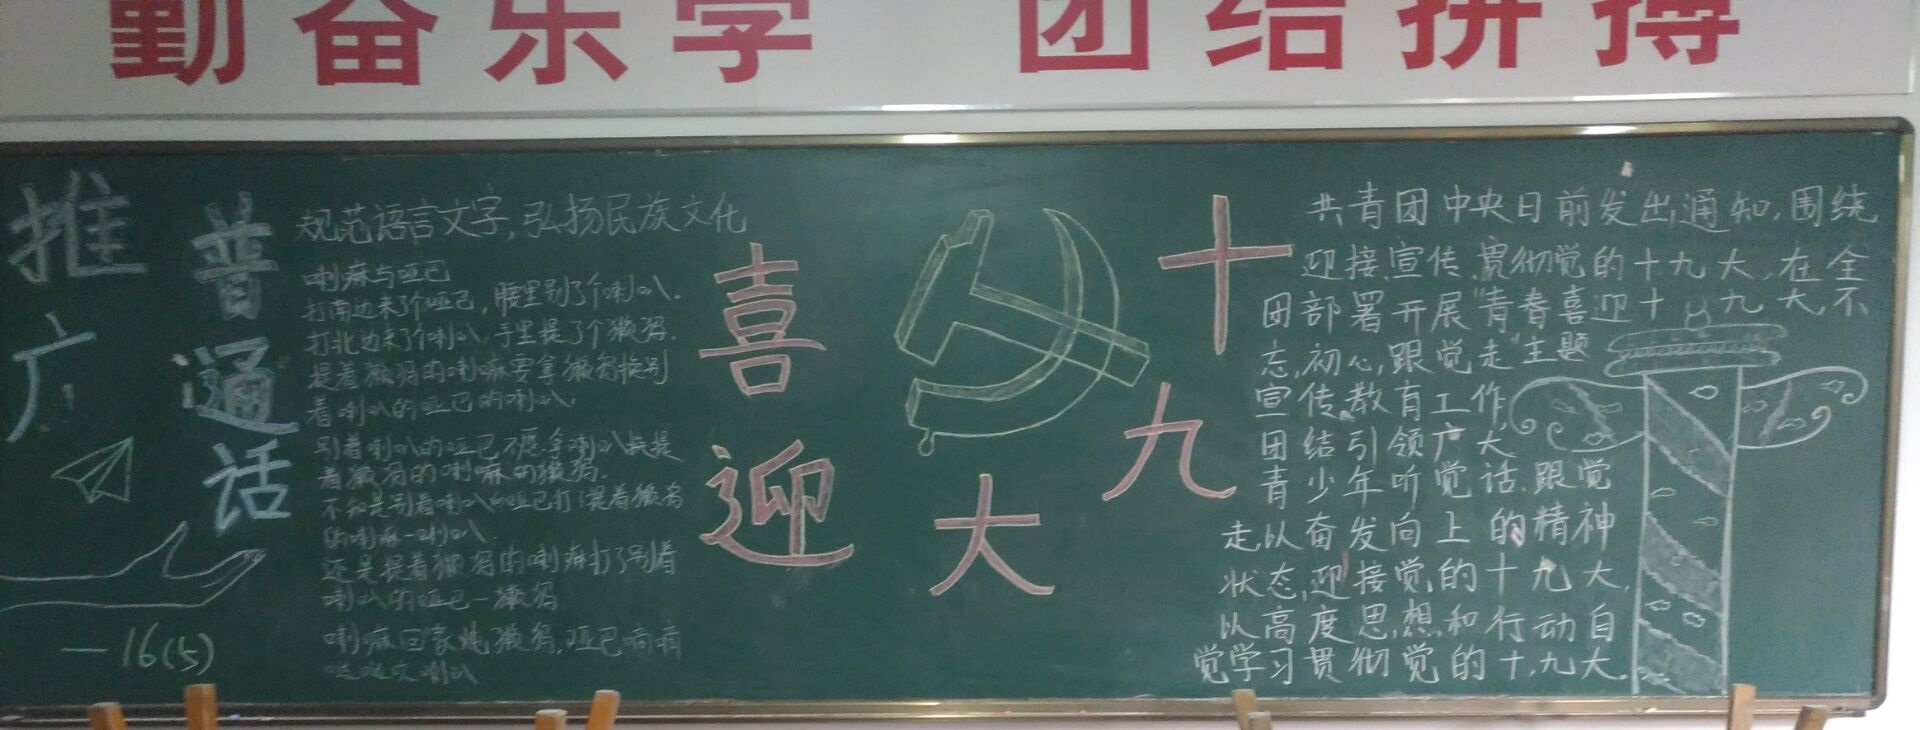 勤奋乐学 团结拼搏
推广
普通话
规范语言文字,弘扬民族文化
喇嘛与哑巴
打南边来了个哑巴,腰里别了个喇叭.
打北边来了个喇叭,手里提了个獭犸.
提着獭犸的喇嘛要拿獭犸换别
着喇叭的哑巴的喇叭.
别着喇叭的哑巴不愿拿喇叭换提
着獭犸的喇嘛的獭犸.
不知是别着喇叭的哑巴打了提着獭犸
的喇嘛一喇叭.
还是提着獭犸的喇嘛打了别着
喇叭的哑巴一獭犸.
喇嘛回家炖獭犸,哑巴嘀嘀
哒哒吹喇叭
—16(5)
喜迎
十九大
共青团中央日前发出通知,围绕
迎接,宣传,贯彻觉的十九大,在全
团部署开展“青春喜迎十九大,不
忘初心,跟觉走”主题
宣传教育工作,
团结引领广大
青少年听觉话.跟觉
走,以奋发向上的精神
状态,迎接觉的十九大,
以高度思想和行动自
觉学习贯彻觉的十九大.